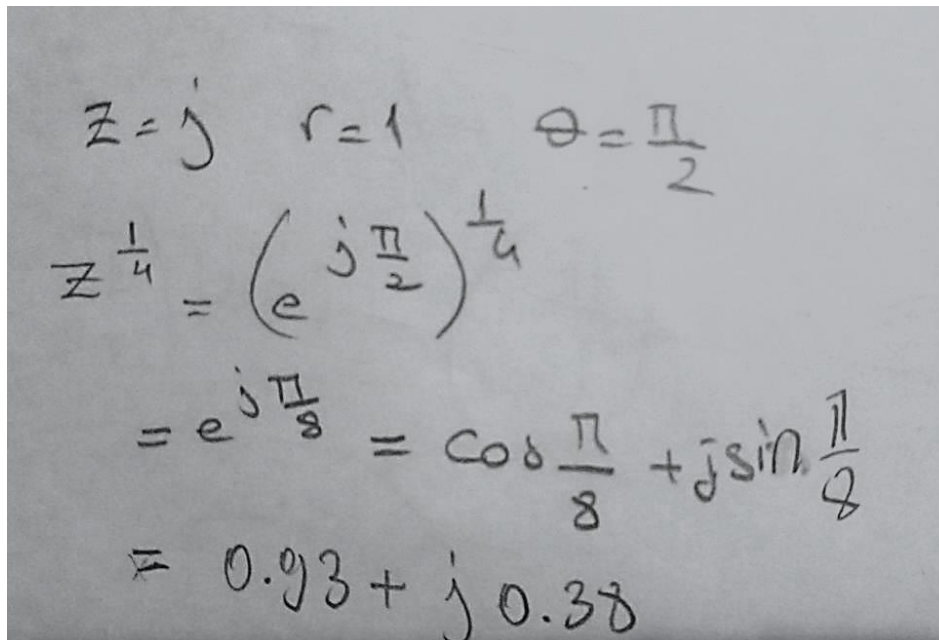 z = j r = 1 θ = π/2
z^(1/4) = (e^(j π/2))^(1/4)
= e^(j π/8) = cos π/8 + j sin π/8
= 0.93 + j 0.38